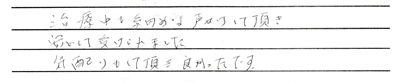 治療中も細めな声かけして頂き
安心して受けられました
気配りもして頂き良かったです